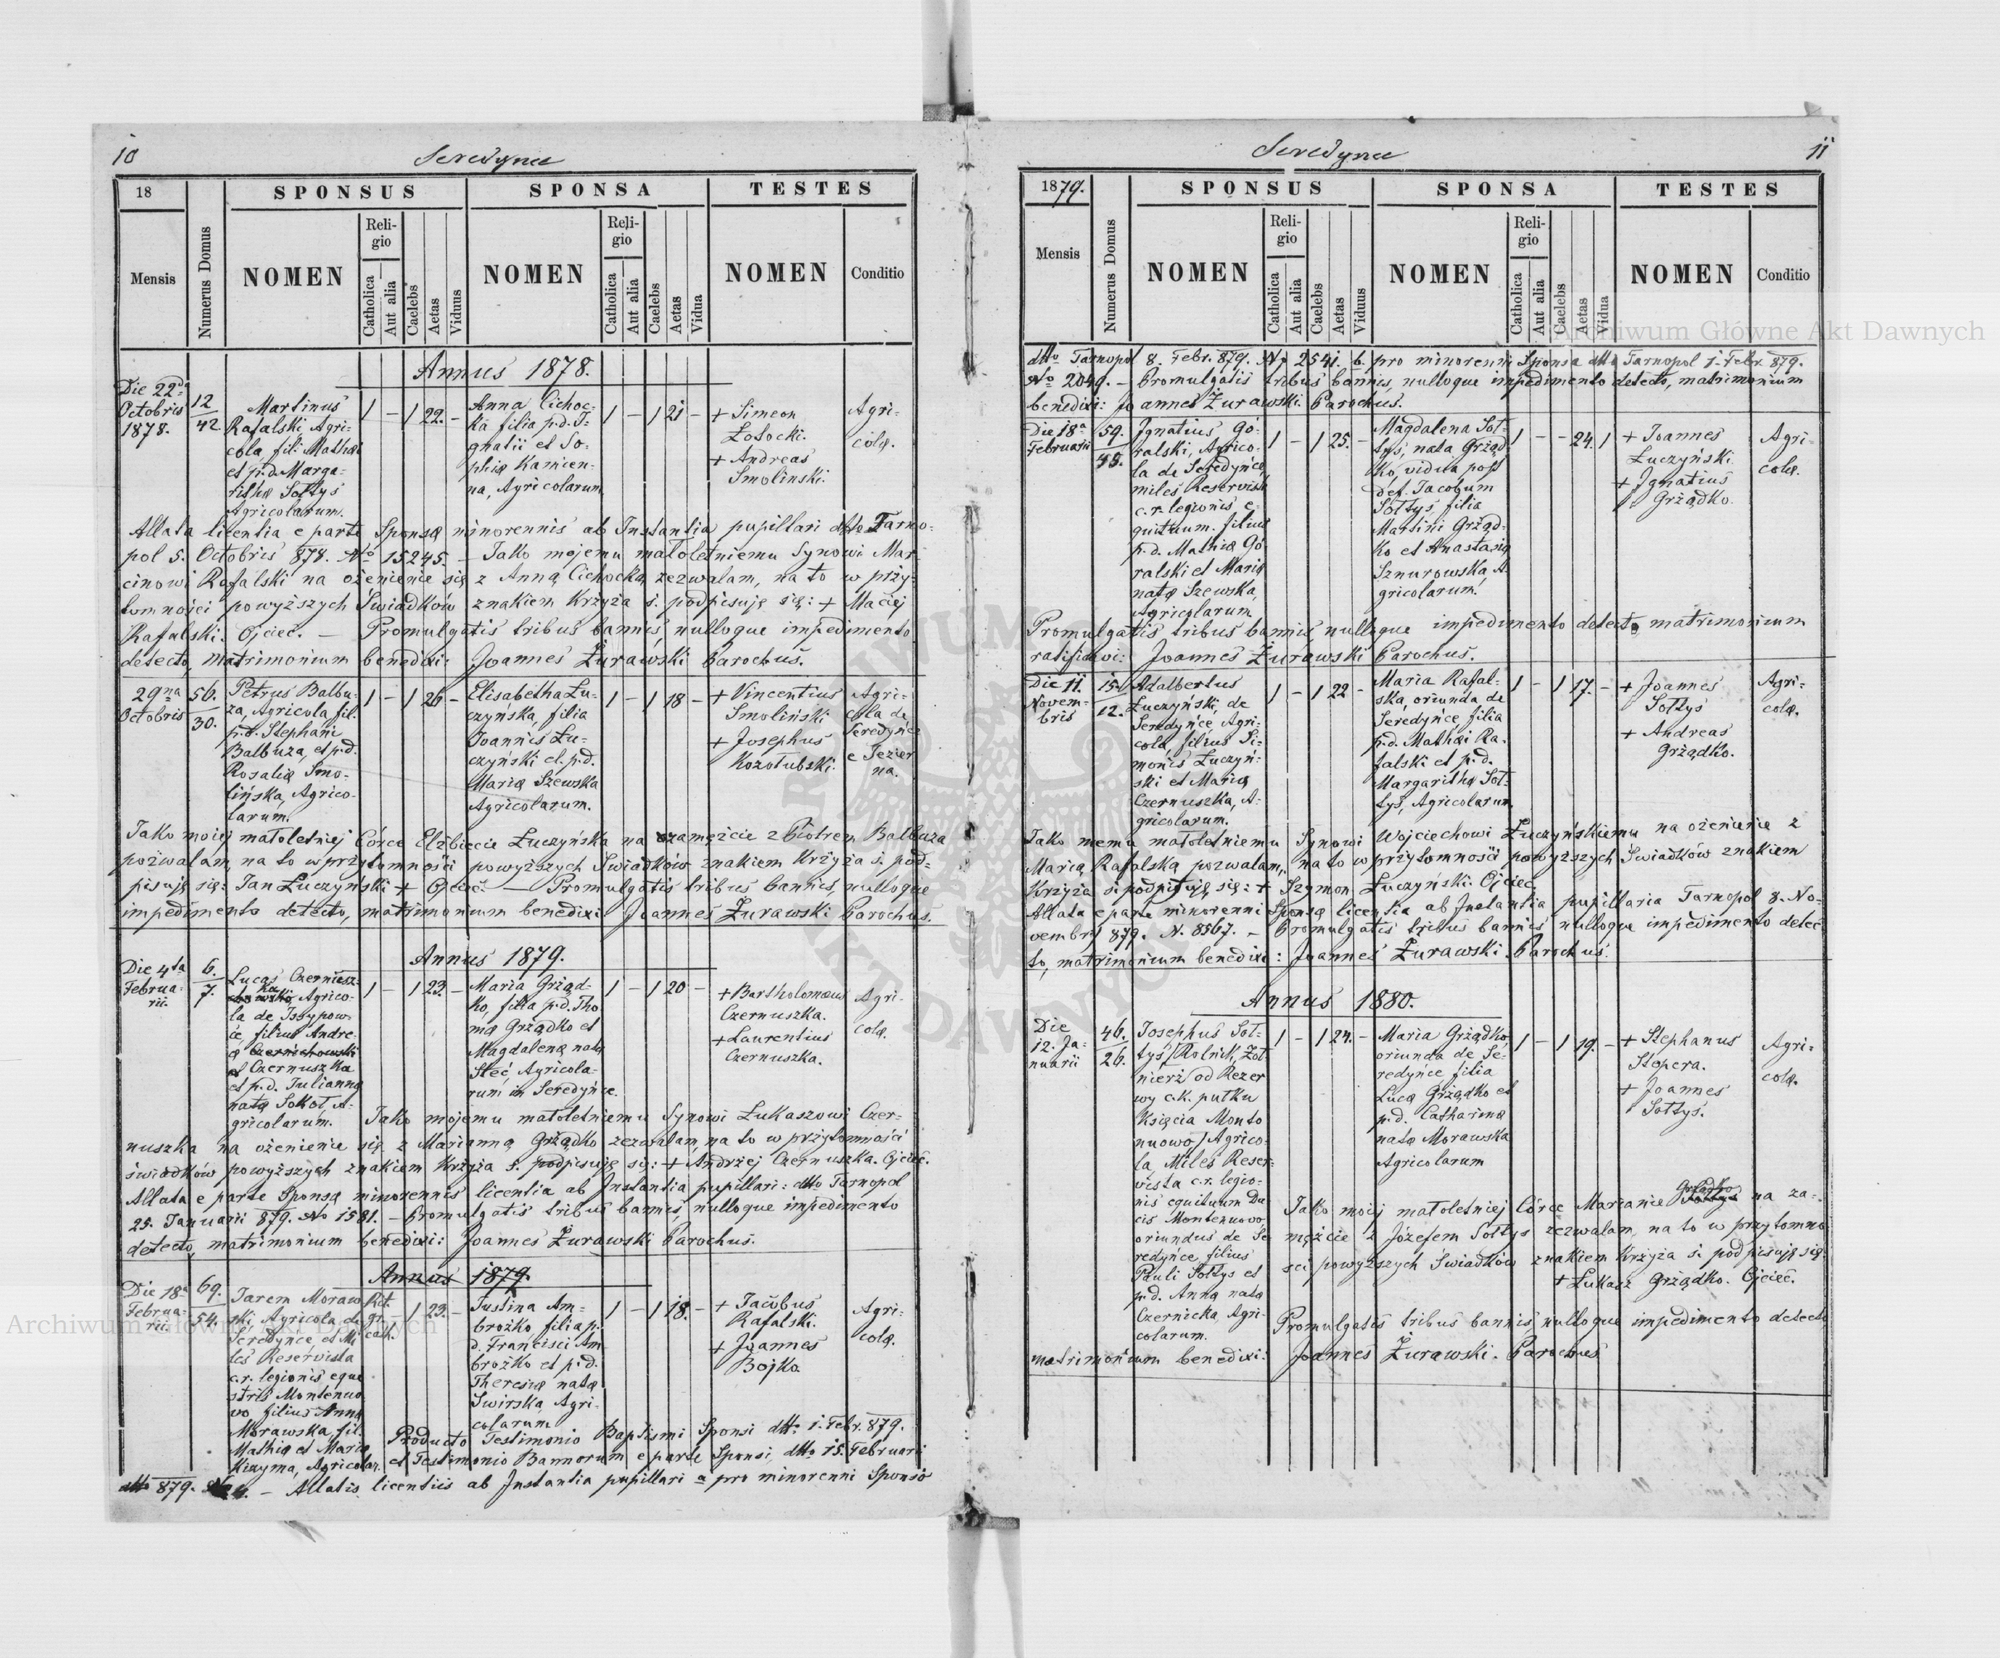 10
Seredynce
18
SPONSUS
SPONSA
TESTES
Mensis
Numerus Domus
NOMEN
Religio
Catholica
Aut alia
Caelebs
Aetas
Viduus
NOMEN
Religio
Catholica
Aut alia
Caelebs
Aetas
Vidua
NOMEN
Conditio
Annus 1878.
Die 22da
Octobris
1878.
12
42.
Martinus
Rafalski Agri-
cola, fil. Mathæi
et p.d. Marga-
rithæ Sołtys
Agricolarum.
1 – 1 22. –
Anna Cichoc-
ka filia p.d. I-
gnatii et So-
phiæ Kamien-
na, Agricolarum
1 – 1 21 –
+ Simeon
Łotocki.
+ Andreas
Smolinski.
Agri-
colæ.
Allata licentia e parte Sponsæ minorennis ab Instantia pupillari dtto Tarno-
pol 5. Octobris 878. No 15245. – Jako mojemu małoletniemu Synowi Mar-
cinowi Rafalski na ożenienie się z Anną Cichocką zezwalam, na to w przy-
tomności powyższych Świadków znakiem Krzyża ś. podpisuję się: + Maciej
Rafalski. Ojciec. – Promulgatis tribus bannis, nulloque impedimento
detecto, matrimonium benedixi: Joannes Żurawski Parochus.
29na
Octobris
56.
30.
Petrus Balbu-
za, Agricola, fil.
p.d. Stephani
Balbuza, et p.d.
Rosaliæ Smo-
lińska, Agrico-
larum.
1 – 1 26 –
Elisabetha Łu-
czyńska, filia
Joannis Łu-
czyński et p.d.
Mariæ Szewska
Agricolarum.
1 – 1 18 –
+ Vincentius
Smoliński
+ Josephus
Kozołubski.
Agri-
cola de
Seredyńce
e Jezier
na.
Jako mojej małoletniej Córce Elżbiecie Łuczyńska na zamężcie z Piotrem Balbuza
pozwalam, na to w przytomności powyższych Świadków znakiem Krzyża ś. pod-
pisuję się: Jan Łuczyński + Ojciec. – Promulgatis tribus bannis, nulloque
impedimento detecto, matrimonium benedixi Joannes Żurawski Parochus.
Annus 1879.
Die 4ta
Februa-
rii.
6.
7.
Lucas Czernusz-
ka Agrico-
la de Issypow-
ce filius Andre-
æ Czernichowski
Czernuszka
et p.d. Juliannæ
natæ Sokoł, A-
gricolarum.
1 – 1 23. –
Maria Grząd-
ko, filia p.d. Tho
mæ Grządko et
Magdalenæ natæ
Steć Agricola-
rum in Seredyńce.
1 – 1 20 –
+ Bartholomæus
Czernuszka.
+ Laurentius
Czernuszka.
Agri-
colæ.
Jako mojemu małoletniemu Synowi Łukaszowi Czer-
nuszka na ożenienie się z Marianną Grządko zezwalam, na to w przytomności
świadków powyższych znakiem Krzyża ś. podpisuję się: + Andrzej Czernuszka. Ojciec.
Allata e parte Sponsæ minorennis licentia ab Instantia pupillari: dtto Tarnopol
25. Januarii 879. No 1581. – Promulgatis tribus bannis, nulloque impedimento
detecto, matrimonium benedixi: Joannes Żurawski Parochus.
Annus 1879.
Die 18a
Februa-
rii.
69.
54.
Jarem Moraw
ski Agricola de
Seredyńce et Mi
les Reservista
c.r. legionis eque
stris Montenuo
vo filius Annæ
Morawska, fil.
Mathiæ et Mariæ
Kuzyma, Agricolar.
Rit.
gr.
cath.
– 1 23. –
Justina Am-
brożko filia p.
d. Francisci Am
brożko et p.d.
Theresiæ natæ
Swirska, Agri-
colarum
1 – 1 18. –
+ Jacobus
Rafalski.
+ Joannes
Bojko
Agri-
colæ.
Producto Testimonio Baptismi Sponsi dtto 1. Febr. 879.
et Testimonio Bannorum e parte Sponsi, dtto 15. Februarii
dtto 879. – Allatis licentiis ab Instantia pupillari a pro minorenni Sponso
11
Seredynce
1879.
SPONSUS
SPONSA
TESTES
Mensis
Numerus Domus
NOMEN
Religio
Catholica
Aut alia
Caelebs
Aetas
Viduus
NOMEN
Religio
Catholica
Aut alia
Caelebs
Aetas
Vidua
NOMEN
Conditio
dtto Tarnopol 8. Febr. 879. No 2541. b. pro minorenni Sponsa dtto Tarnopol 1. Febr. 879.
No 2049. – Promulgatis tribus bannis, nulloque impedimento detecto, matrimonium
benedixi: Joannes Żurawski. Parochus.
Die 18a
Februarii
59.
43.
Ignatius Gó-
ralski, Agrico-
la de Seredyńce,
miles Reservista
c.r. legionis e-
quitum. filius
p.d. Mathiæ Gó-
ralski et Mariæ
natæ Szewska,
Agricolarum
1 – 1 25. –
Magdalena Soł-
tys, nata Grząd-
ko, vidua post
def. Jacobum
Sołtys, filia
Martini Grząd-
ko et Anastasiæ
Sznurowska, A-
gricolarum.
1 – – 24. 1
+ Joannes
Łuczyński.
+ Ignatius
Grządko.
Agri-
colæ.
Promulgatis tribus bannis, nulloque impedimento detecto matrimonium
ratificavi: Joannes Żurawski Parochus.
Die 11.
Novem-
bris
15.
12.
Adalbertus
Łuczyński, de
Seredyńce Agri-
cola, filius Si-
monis Łuczyń-
ski et Mariæ
Czernuszka, A-
gricolarum.
1 – 1 22 –
Maria Rafal-
ska, oriunda de
Seredyńce filia
p.d. Mathæi Ra-
falski et p.d.
Margarithæ Soł-
tys, Agricolarum.
1 – 1 17. –
+ Joannes
Sołtys
+ Andreas
Grządko.
Agri-
colæ.
Jako memu małoletniemu Synowi Wojciechowi Łuczyńskiemu na ożenienie z
Marią Rafalską pozwalam, na to w przytomności powyższych Świadków znakiem
Krzyża ś. podpisuję się: + Szymon Łuczyński. Ojciec.
Allata e parte minorenni Sponsæ licentia ab Instantia pupillaria Tarnopol 8. No-
vembris 879. N. 8567. – Promulgatis tribus bannis nulloque impedimento detec-
to, matrimonium benedixi: Joannes Żurawski. Parochus.
Annus 1880.
Die
12. Ja-
nuarii
46.
26.
Josephus Soł-
tys /Rolnik, Żoł
nierz od Rezer
wy c.k. pułku
Księcia Monte
nuovo/ Agrico-
la, Miles Reser-
vista c.r. legio-
nis equitum Du
cis Montenuovo
oriundus de Se
redyńce, filius
Pauli Sołtys et
p.d. Annæ natæ
Czernicka, Agri-
colarum.
1 – 1 24. –
Maria Grządko
oriunda de Se-
redyńce filia
Lucæ Grządko et
p.d. Catharinæ
natæ Morawska
Agricolarum
1 – 1 19. –
+ Stephanus
Stopera.
+ Joannes
Sołtys.
Agri-
colæ.
Jako mojej małoletniej Córce Mariannie Grządko na za-
mężcie z Józefem Sołtys zezwalam, na to w przytomno
ści powyższych Świadków znakiem Krzyża ś. podpisuję się:
+ Łukasz Grządko. Ojciec.
Promulgatis tribus bannis, nulloque impedimento detecto
matrimonium benedixi: Joannes Żurawski. Parochus
Archiwum Główne Akt Dawnych
Archiwum Główne Akt Dawnych
ARCHIWUM
AKT DAWNYCH